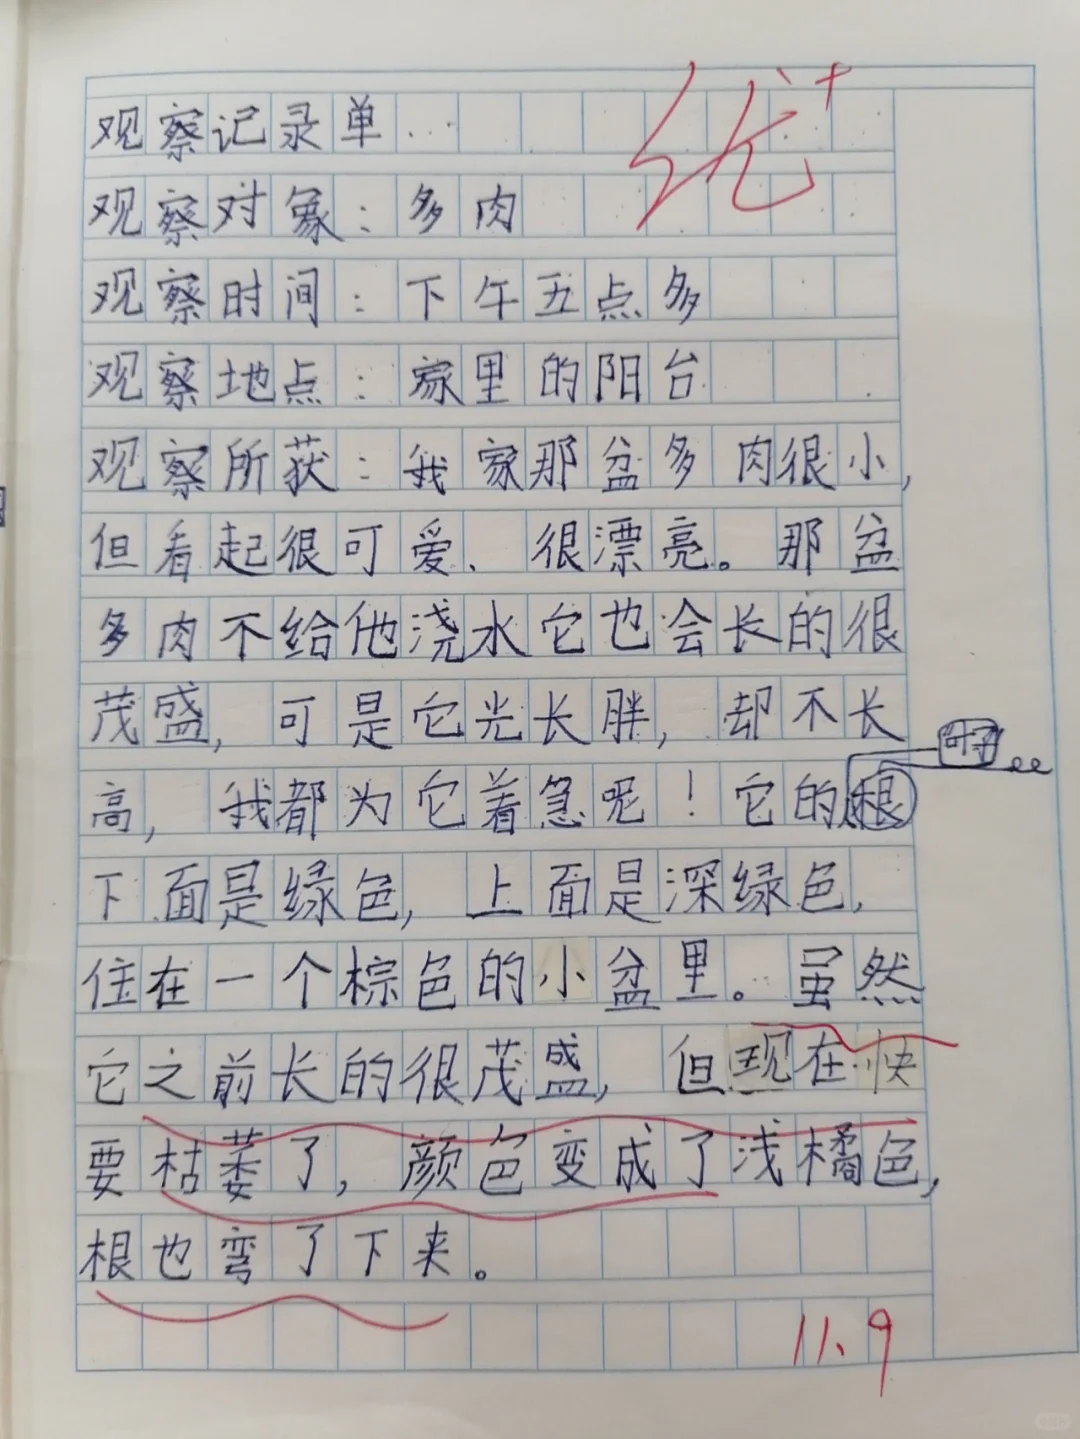 观察记录单
优+
观察对象：多肉
观察时间：下午五点多
观察地点：家里的阳台
观察所获：我家那盆多肉很小，
但看起很可爱、很漂亮。那盆
多肉不给他浇水它也会长的很
茂盛，可是它光长胖，却不长
叶子
高，我都为它着急呢！它的根
下面是绿色，上面是深绿色，
住在一个棕色的小盆里。虽然
它之前长的很茂盛，但现在快
要枯萎了，颜色变成了浅橘色，
根也弯了下来。
11.9